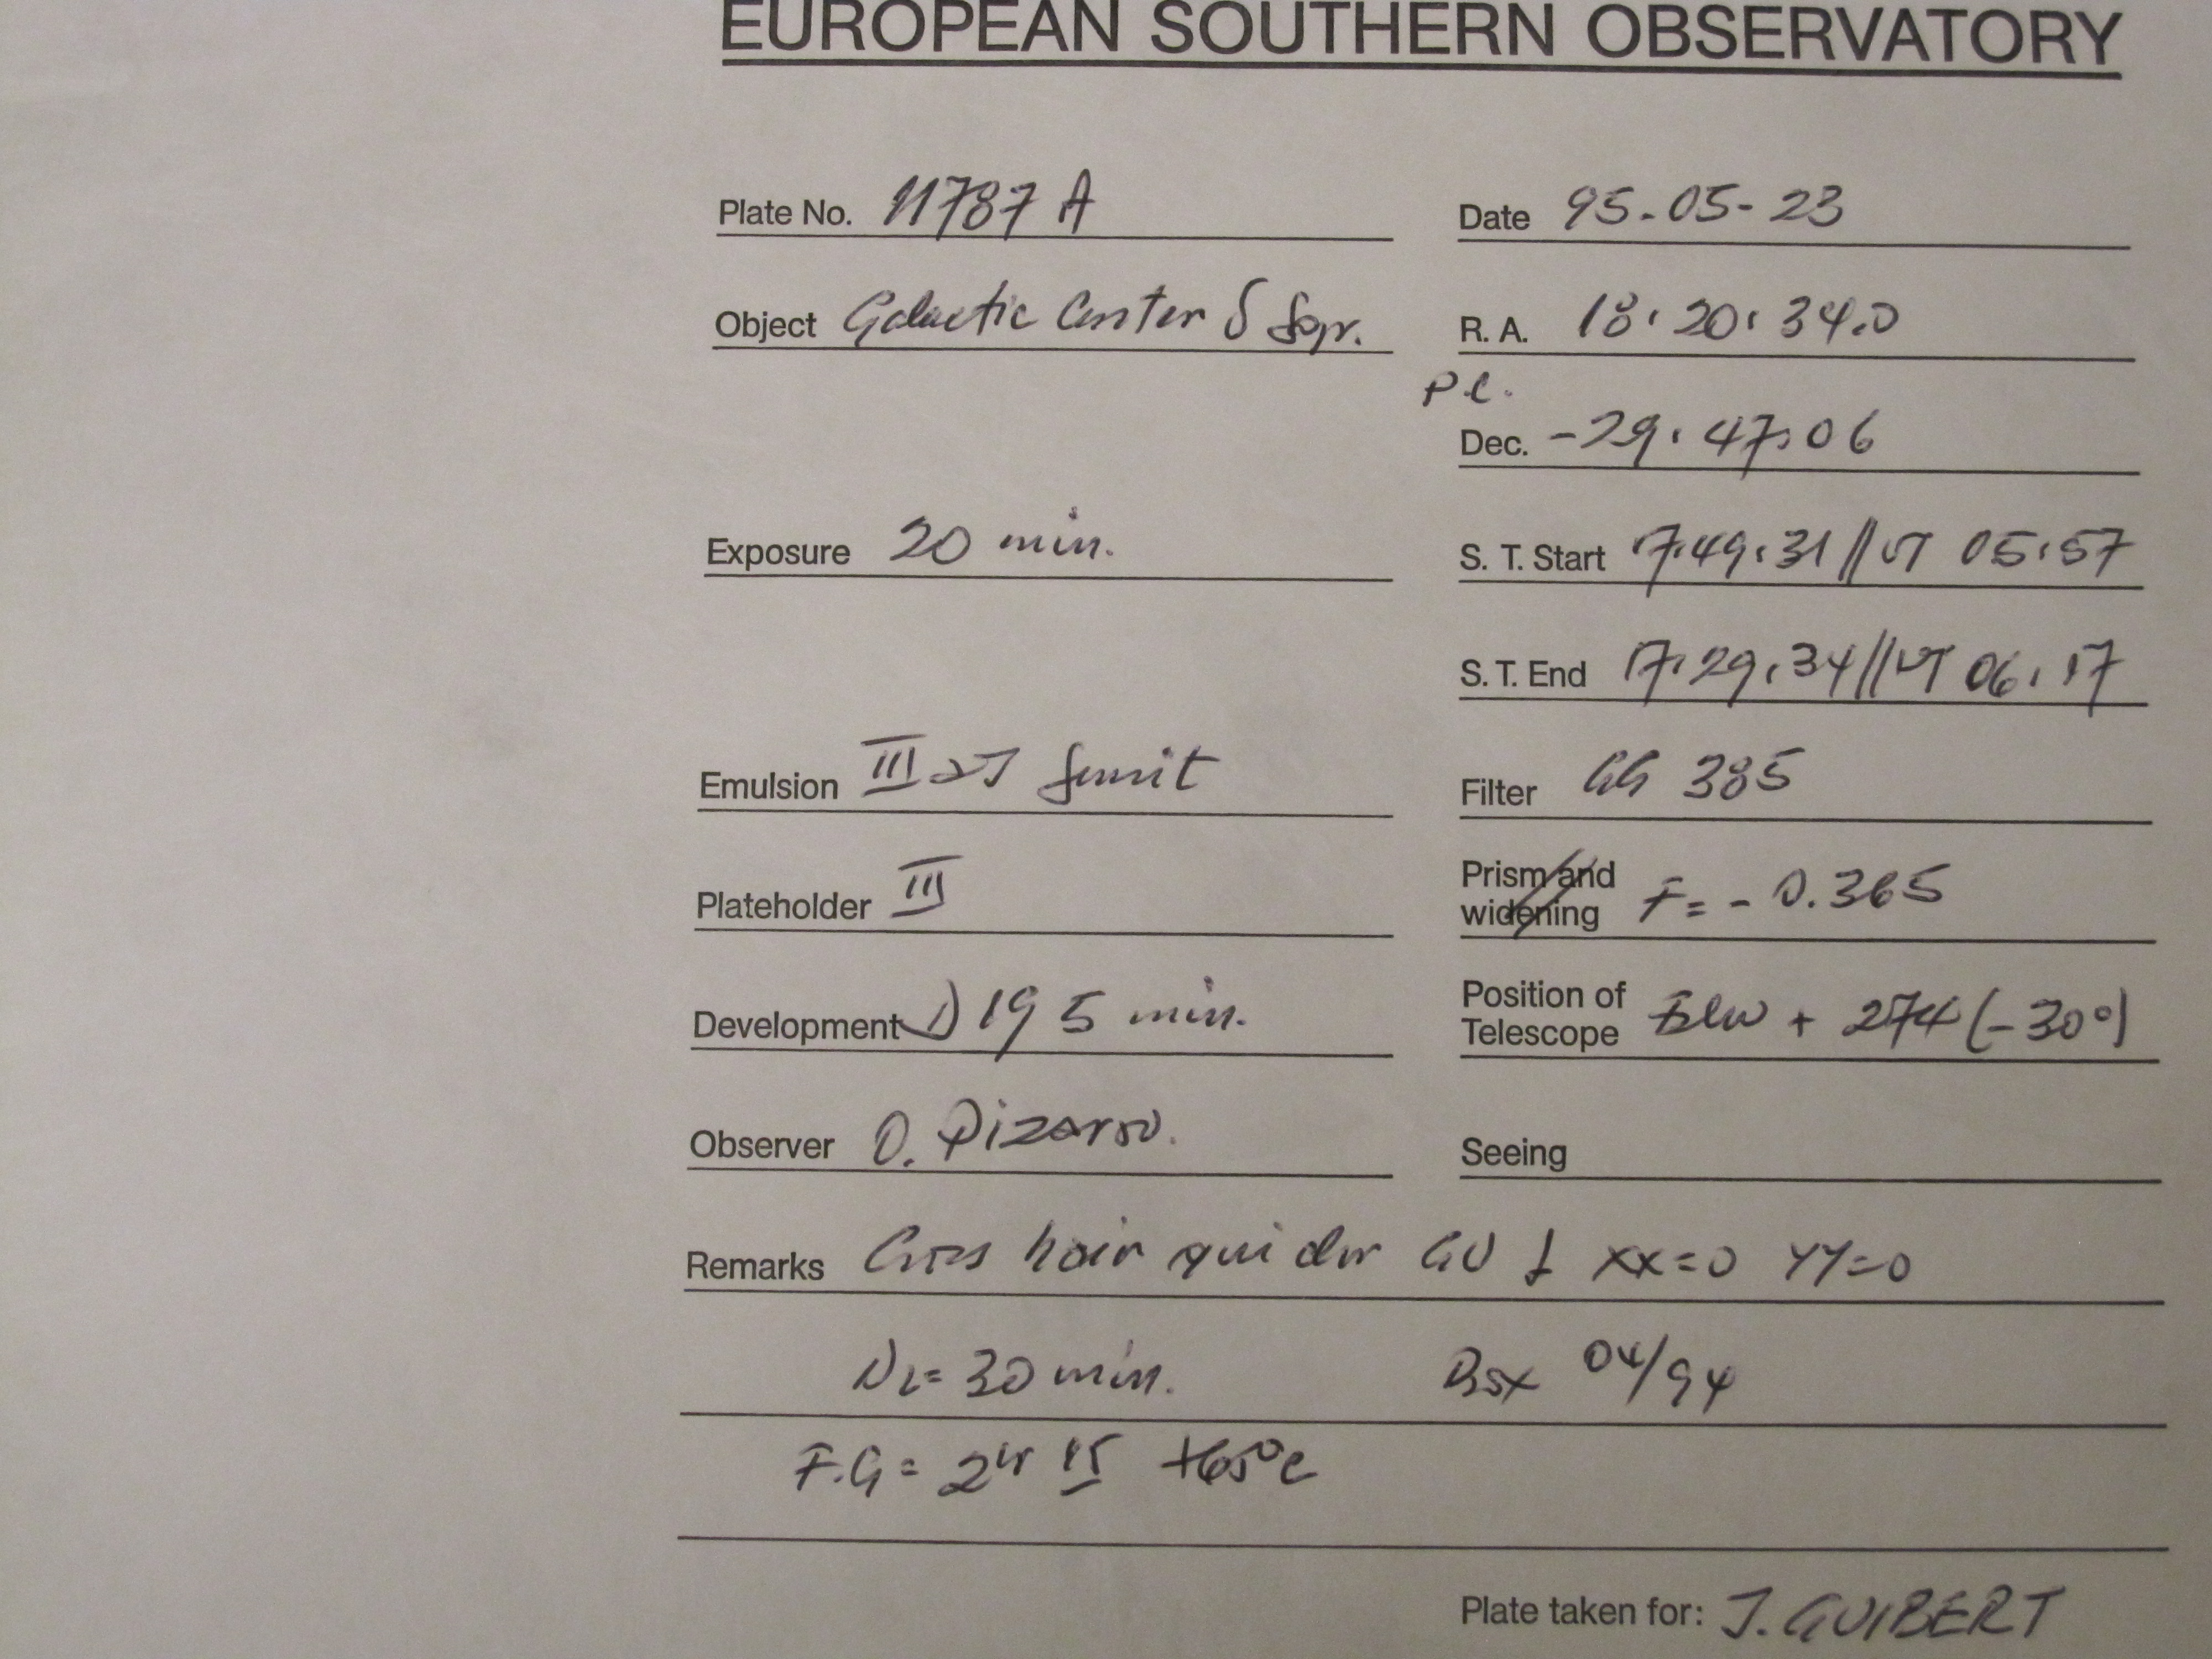 EUROPEAN SOUTHERN OBSERVATORY
Plate No. 11787 A
Date 95-05-23
Object Galactic Center δ
R. A. 18:20:34.0
Dec. -29:47:06
Exposure 20 min.
S. T. Start 17:49:31 // UT 05:57
S. T. End 17:29:34 // UT 06:17
Emulsion III aJ
Filter GG 385
Plateholder III
Prism and widening F = - 0.365
Development D19 5 min.
Position of Telescope + 274 (-30°)
Observer O. Pizarro.
Seeing
Remarks Cross hair guider XX=0 YY=0
= 30 min. Box 04/94
F.G = +65°C
Plate taken for: J. GUIBERT